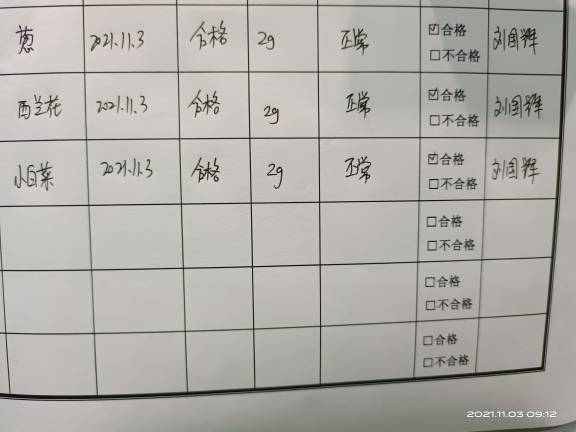 葱 2021.11.3 合格 2g 正常 ☑合格 刘国辉
□不合格
西兰花 2021.11.3 合格 2g 正常 ☑合格 刘国辉
□不合格
小白菜 2021.11.3 合格 2g 正常 ☑合格 刘国辉
□不合格
□合格
□不合格
□合格
□不合格
□合格
□不合格
2021.11.03 09:12